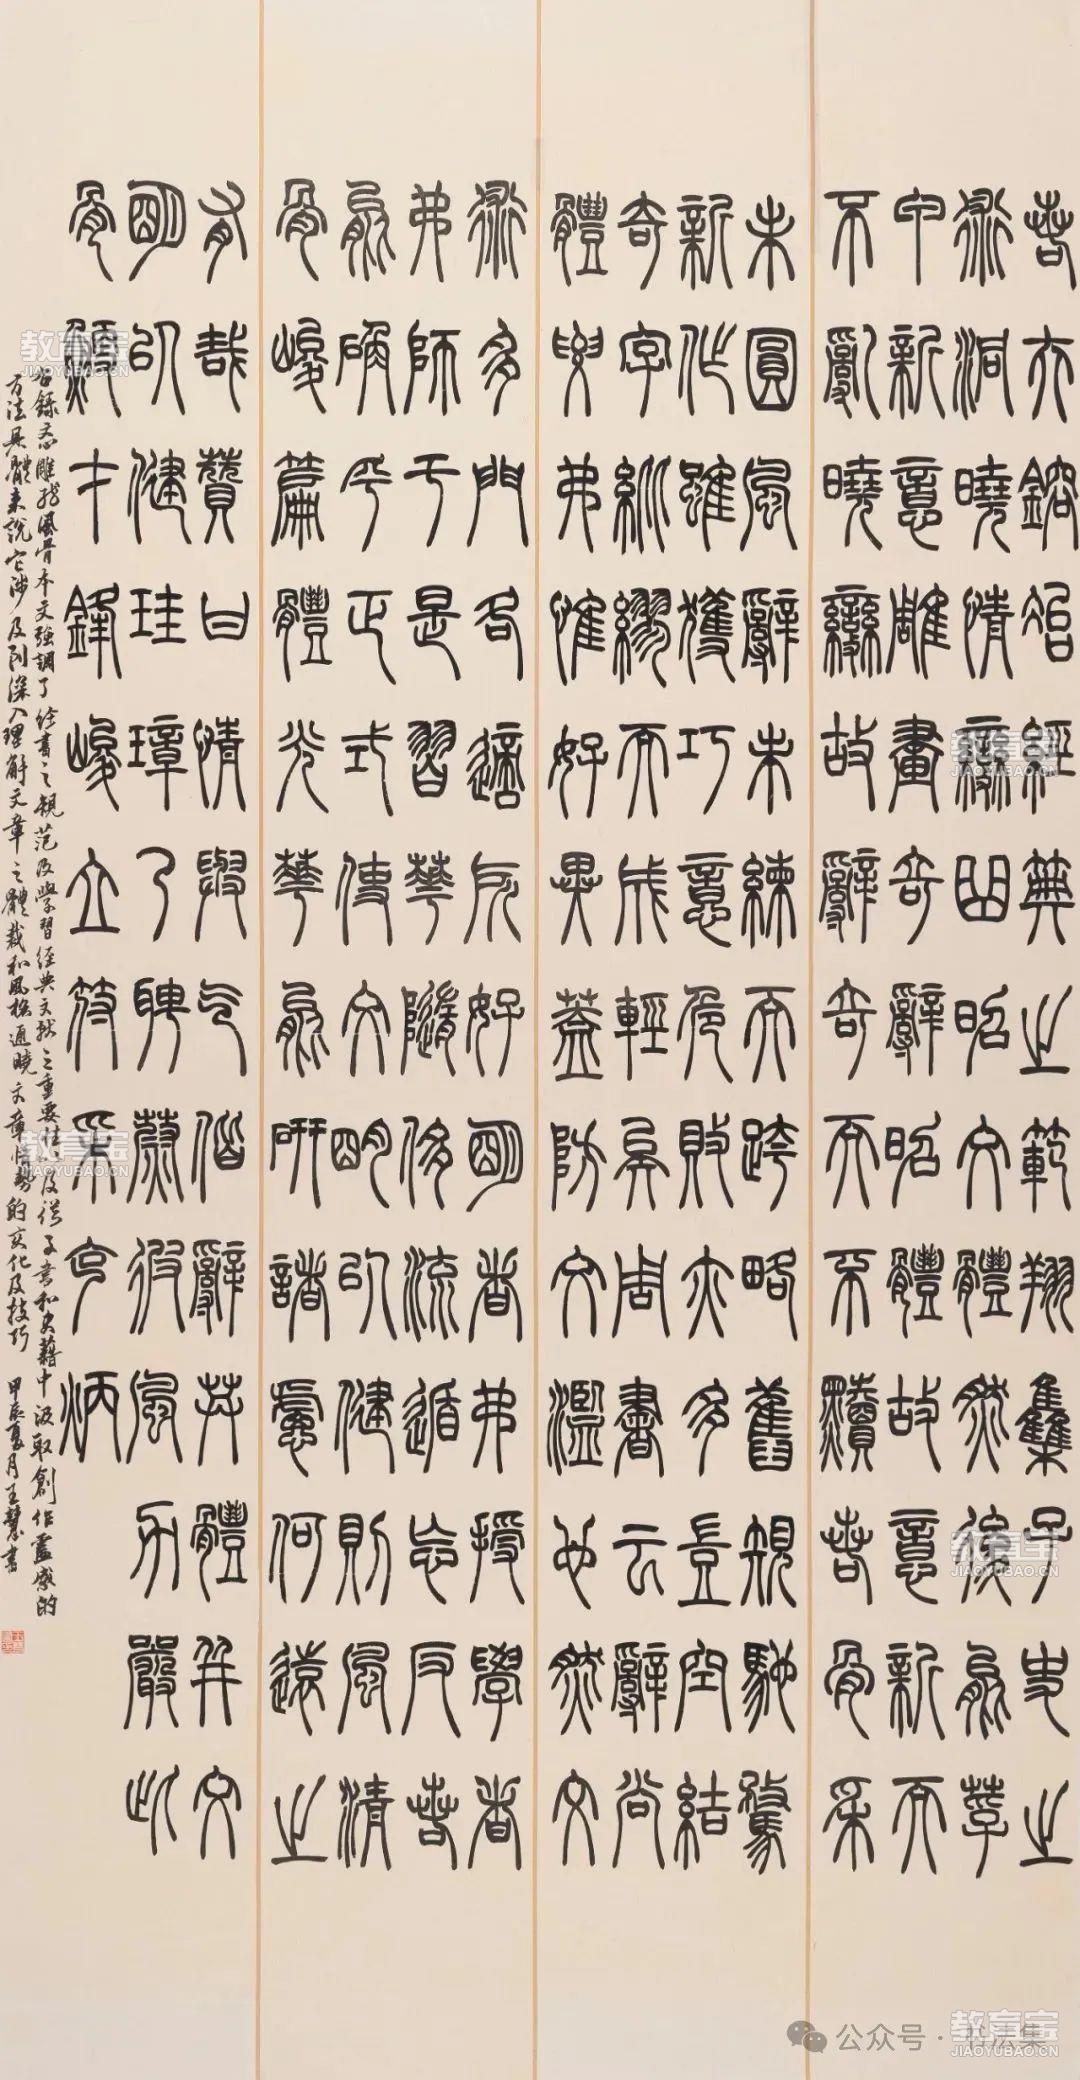 若夫鎔冶經典之範翔集子史之
術洞曉情變曲昭文體然後能莩
甲新意雕畫奇辭昭體故意新而
不亂曉變故辭奇而不黷若骨采
未圓風辭未練而跨略舊規馳騖
新作雖獲巧意危敗亦多豈空結
奇字紕繆而成輕矣周書云辭尚
體要弗惟好異蓋防文濫也然文
術多門各適所好明者弗授學者
弗師于是習華隨侈流遁忘反若
能确乎正式使文明以健則風清
骨峻篇體光華能研諸慮何遠之
有哉贊曰情與气偕辭共體并文
明以健珪璋乃聘蔚彼風力嚴此
骨鯁才鋒峻立符采克炳
右錄文心雕龍風骨本文強調了經書之規范及學習經典文獻之重要性以及從子書和史藉中汲取創作靈感的
方法具體來說它涉及到深入理解文章之體裁和風格通曉文章情勢的变化及技巧 甲辰夏月王慧書
教育宝
JIAOYUBAO.CN
公众号·书法集